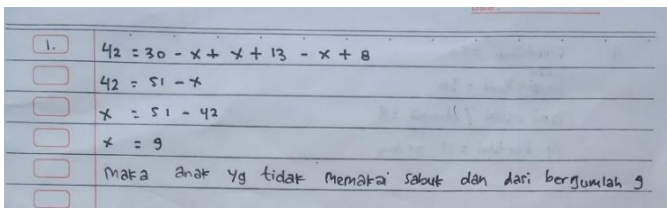 1. 42 = 30 - x + x + 13 - x + 8
42 = 51 - x
x = 51 - 42
x = 9
maka anak yg tidak memakai sabuk dan dasi berjumlah 9